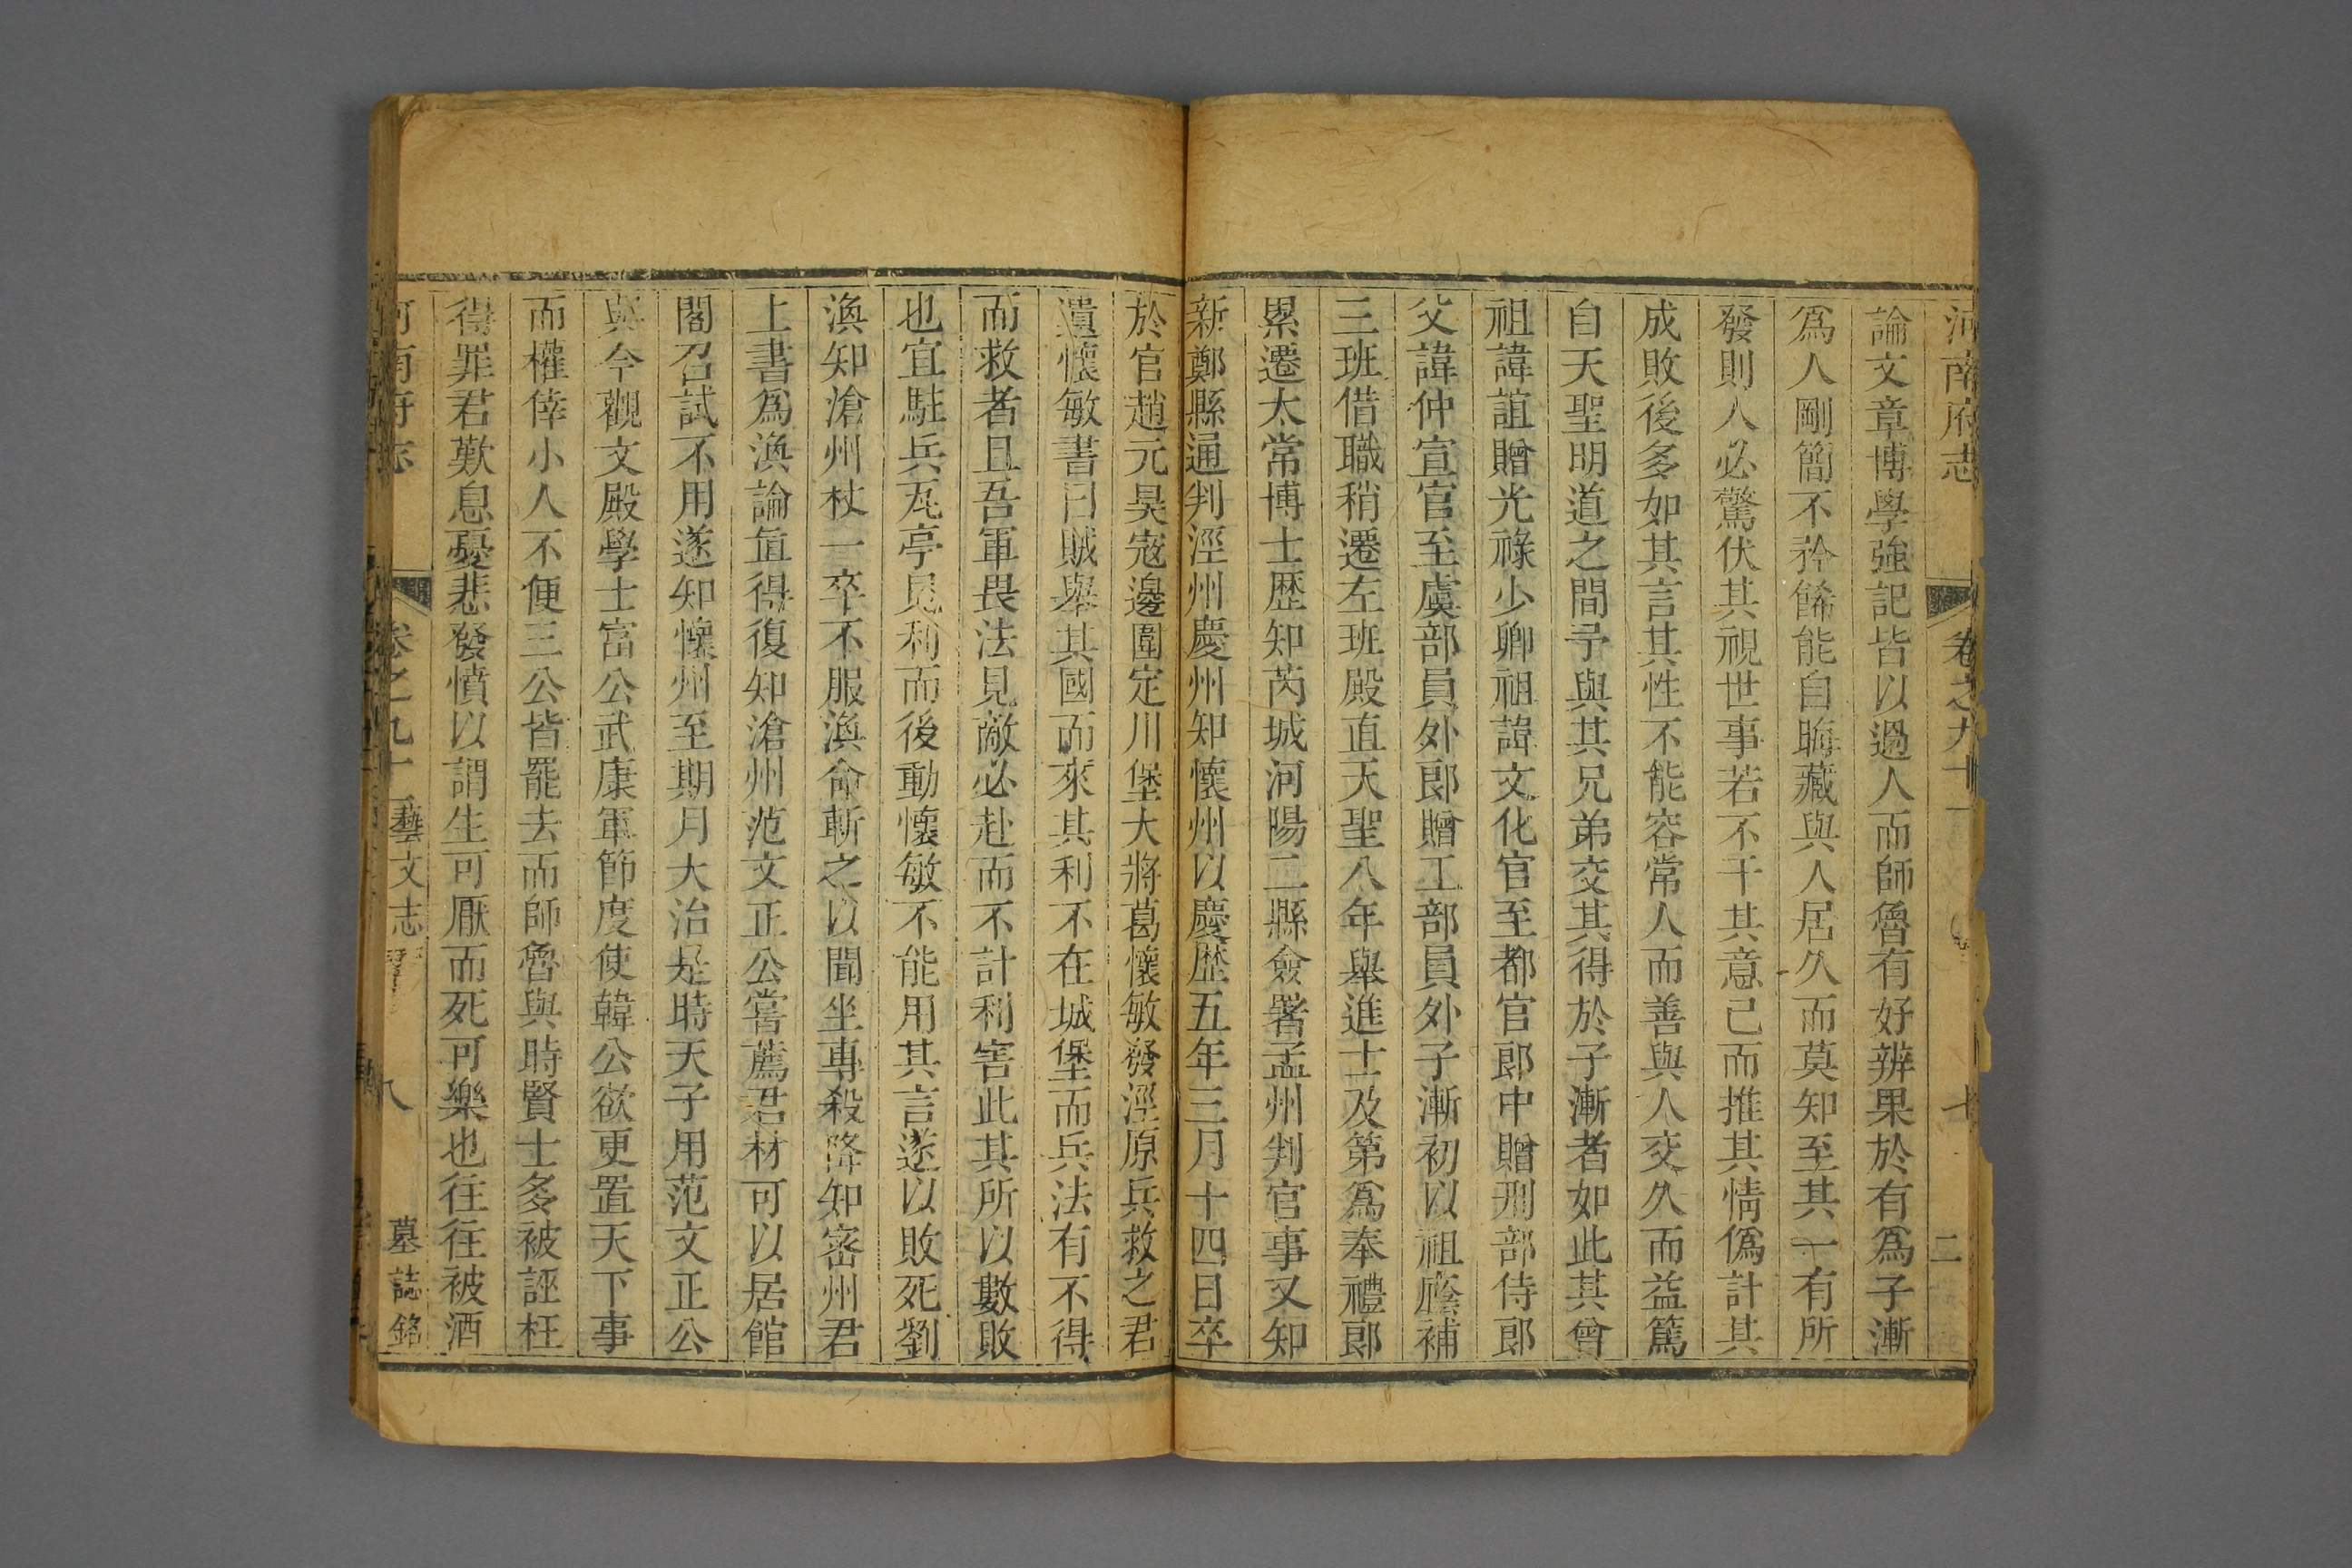 河南府志 卷之九十一 七 二
論文章博學強記皆以過人而師魯有好辨果於有爲子漸
爲人剛簡不矜餙能自晦藏與人居久而莫知至其一有所
發則人必驚伏其視世事若不干其意已而推其情僞計其
成敗後多如其言其性不能容常人而善與人交久而益篤
自天聖明道之間予與其兄弟交其得於子漸者如此其曾
祖諱誼贈光祿少卿祖諱文化官至都官郎中贈刑部侍郎
父諱仲宣官至虞部員外郎贈工部員外子漸初以祖廕補
三班借職稍遷左班殿直天聖八年舉進士及第爲奉禮郎
累遷太常博士歷知芮城河陽二縣僉署孟州判官事又知
新鄭縣通判涇州慶州知懷州以慶歷五年三月十四日卒
於官趙元昊寇邊圍定川堡大將葛懷敏發涇原兵救之君
遺懷敏書曰賊舉其國而來其利不在城堡而兵法有不得
而救者且吾軍畏法見敵必赴而不計利害此其所以數敗
也宜駐兵瓦亭見利而後動懷敏不能用其言遂以敗死劉
渙知滄州杖一卒不服渙命斬之以聞坐專殺降知密州君
上書爲渙論直得復知滄州范文正公嘗薦君材可以居館
閣召試不用遂知懷州至期月大治是時天子用范文正公
與今觀文殿學士富公武康軍節度使韓公欲更置天下事
而權倖小人不便三公皆罷去而師魯與時賢士多被誣枉
得罪君歎息憂悲發憤以謂生可厭而死可樂也往往被酒
河南府志 卷之九十一 藝文志 八 墓誌銘